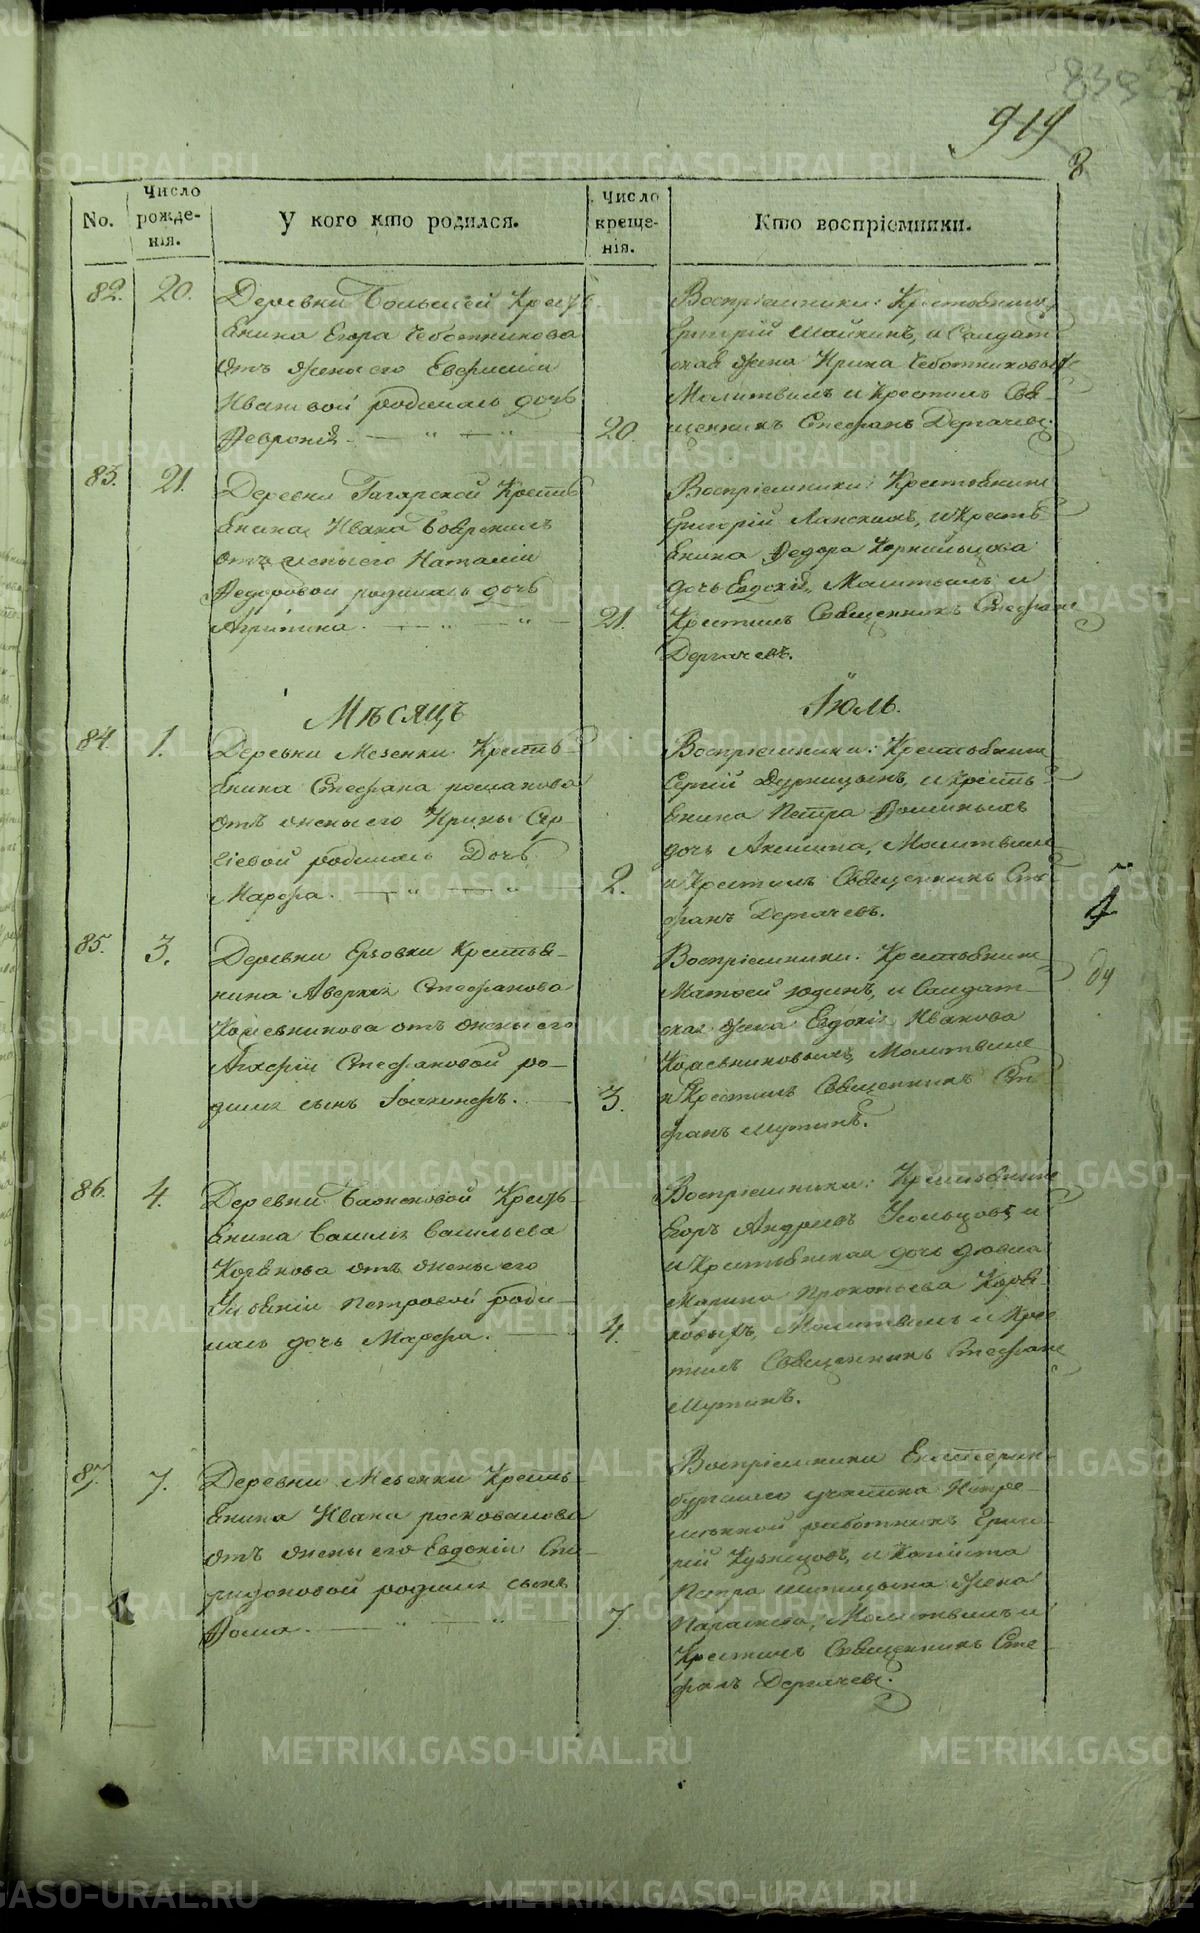 839
919
8
No.
Число рожде-нія.
У кого кто родился.
Число креще-нія.
Кто воспріемники.
82. 20.
Деревни Большей Кресть
янина Егора Чеботникова
отъ жены его Евфиміи
Ивановой родилась дочь
Февронія. 20.
Воспріемники: Крестьянинъ
Григорій Шайкинъ, и Салдат
ская жена Ирина Чеботниковыхъ
Молитвилъ и Крестилъ Свя
щенникъ Стефанъ Дергачевъ.
83. 21.
Деревни Гагарской Кресть
янина Ивана Боярскихъ
отъ жены его Наталіи
Федоровой родилась дочь
Агрипина. 21.
Воспріемники: Крестьянинъ
Григорій Ланскихъ, и Кресть
янина Федора Корнильцова
дочь Евдокія, Молитвилъ и
Крестилъ Священникъ Стефанъ
Дергачевъ.
Мѣсяцъ Іюль.
84. 1.
Деревни Мезенки Кресть
янина Стефана
отъ жены его Ирины Сер
гіевой родилась Дочь
Марфа. 2.
Воспріемники: Крестьянинъ
Сергій и Кресть
янина Петра Фоминыхъ
дочь Акилина, Молитвилъ
и Крестилъ Священникъ Сте
фанъ Дергачевъ.
85. 3.
Деревни Ерзовки Крестья-
нина Аверкія Стефанова
Кожевникова отъ жены его
Анхефіи Стефановой ро-
дился сынъ Іоакинфъ. 3.
Воспріемники: Крестьянинъ
Матфей Юдинъ, и Салдат-
ская жена Евдокія Иванова
Кожевниковыхъ, Молитвилъ
и Крестилъ Священникъ Сте
фанъ Мутинъ.
86. 4.
Деревни Баженовой Кресть-
янина Василія Васильева
Корякова отъ жены его
Уліяніи Петровой роди-
лась дочь Марфа. 4.
Воспріемники: Крестьянинъ
Егоръ Андреевъ Усольцовъ и
и Крестьянская дочь дѣвка
Марина Прокопьева Коря-
ковыхъ, Молитвилъ и Крес
тилъ Священникъ Стефанъ
Мутинъ.
87. 7.
Деревни Мезенки Кресть-
янина Ивана
отъ жены его Евдокіи Спи-
ридоновой родился сынъ
Фома. 7.
Воспріемники Екатерин-
бургскаго участка Непре-
менной работникъ Григо-
рій Кузнецовъ, и
Петра жена
Параскева, Молитвилъ и
Крестилъ Священникъ Сте-
фанъ Дергачевъ.
METRIKI.GASO-URAL.RU